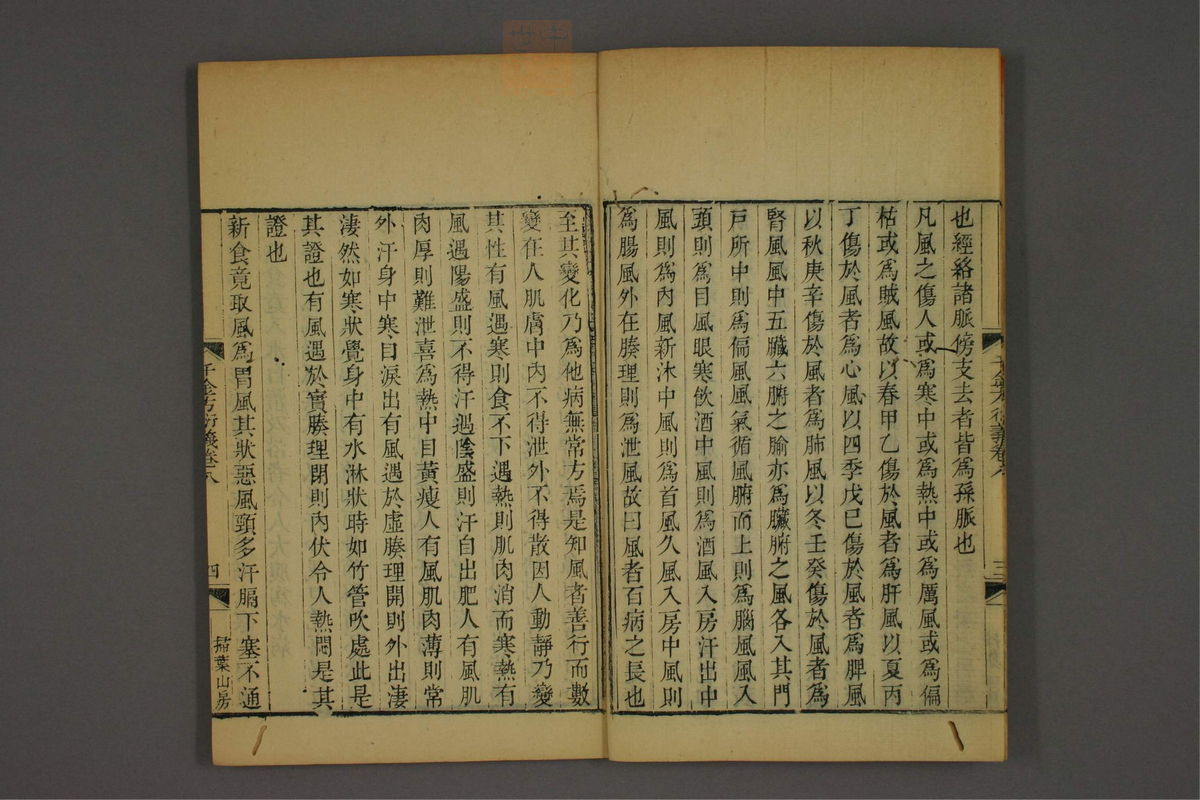 也經絡諸脈傍支去者皆爲孫脈也
凡風之傷人或爲寒中或爲熱中或爲厲風或爲偏
枯或爲賊風故以春甲乙傷於風者爲肝風以夏丙
丁傷於風者爲心風以四季戊巳傷於風者爲脾風
以秋庚辛傷於風者爲肺風以冬壬癸傷於風者爲
腎風風中五臟六腑之腧亦爲臟腑之風各入其門
戸所中則爲偏風風氣循風腑而上則爲腦風風入
頭則爲目風眼寒飲酒中風則爲酒風入房汗出中
風則爲內風新沐中風則爲首風久風入房中風則
爲腸風外在腠理則爲泄風故曰風者百病之長也
三
至其變化乃爲他病無常方焉是知風者善行而數
變在人肌膚中內不得泄外不得散因人動靜乃變
其性有風遇寒則食不下遇熱則肌肉消而寒熱有
風遇陽盛則不得汗遇陰盛則汗自出肥人有風肌
肉厚則難泄喜爲熱中目黃瘦人有風肌肉薄則常
外汗身中寒目淚出有風遇於虛腠理開則外出淒
淒然如寒狀覺身中有水淋狀時如竹管吹處此是
其證也有風遇於實腠理閉則內伏令人熱悶是其
證也
新食竟取風爲胃風其狀惡風頸多汗膈下塞不通
千金方衍義卷八
四
掃葉山房